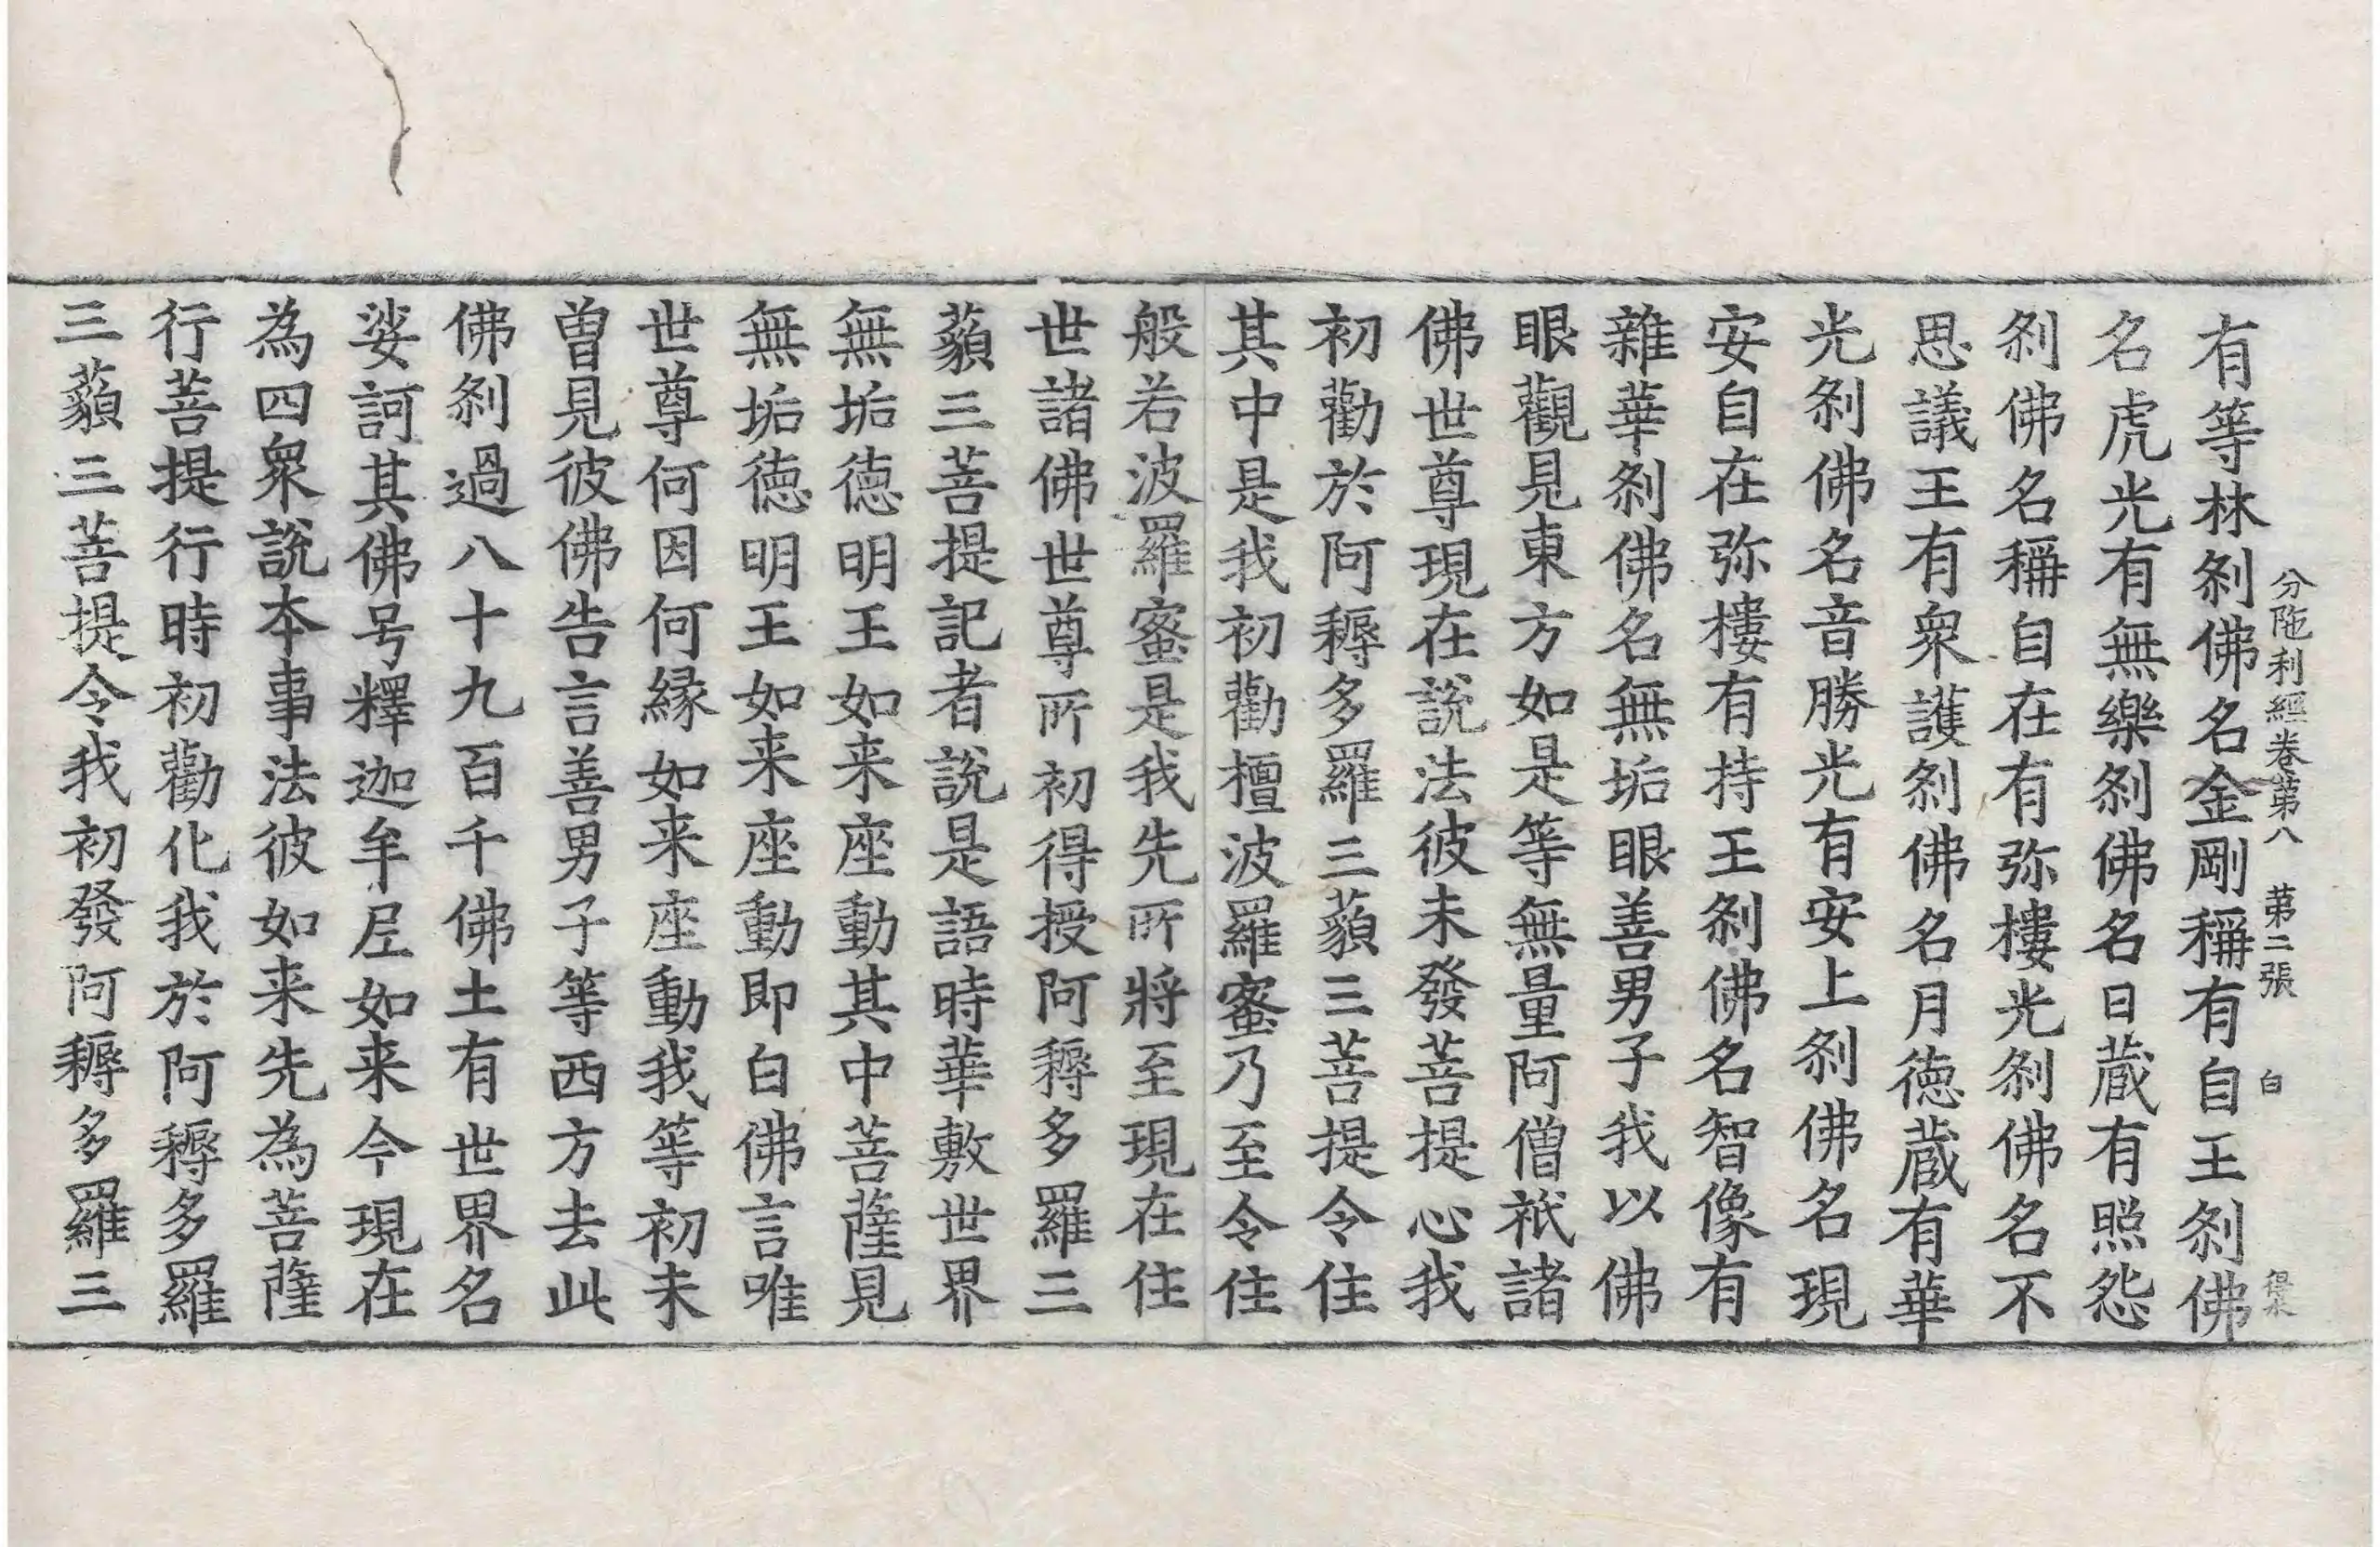 分陁利經卷第八 第二張 白
有等林刹佛名金剛稱有自王刹佛
名虎光有無樂刹佛名日蔵有照怨
刹佛名稱自在有弥樓光刹佛名不
思議王有衆護刹佛名月徳蔵有華
光刹佛名音勝光有安上刹佛名現
安自在弥樓有持王刹佛名智像有
雜華刹佛名無垢眼善男子我以佛
眼觀見東方如是等無量阿僧祇諸
佛世尊現在說法彼未發菩提心我
初勸於阿耨多羅三藐三菩提令住
其中是我初勸檀波羅蜜乃至令住
般若波羅蜜是我先所將至現在住
世諸佛世尊所初得授阿耨多羅三
藐三菩提記者說是語時華敷世界
無垢徳明王如来座動其中菩薩見
無垢徳明王如来座動即白佛言唯
世尊何因何縁如来座動我等初未
曽見彼佛告言善男子等西方去此
佛刹過八十九百千佛土有世界名
娑訶其佛号釋迦牟尼如来今現在
為四衆說本事法彼如来先為菩薩
行菩提行時初勸化我於阿耨多羅
三藐三菩提令我初發阿耨多羅三